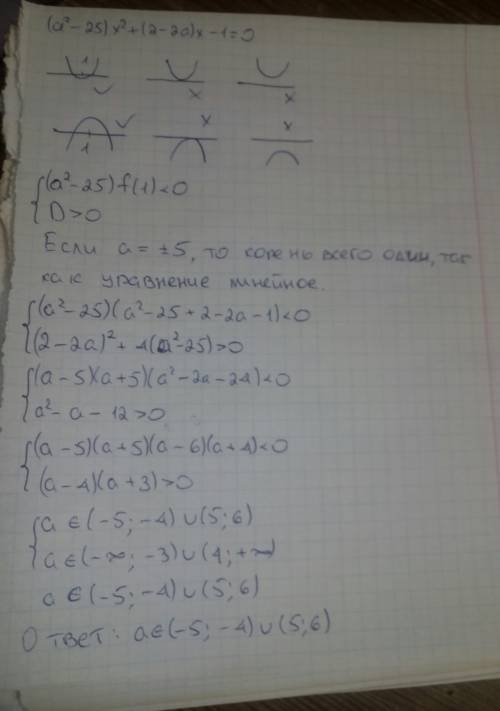 (a²-25)x²+(2-2a)x-1=0
1
x x
x x
1
{(a²-25)f(1)<0
D>0
Если a=±5, то корень всего один, так
как уравнение линейное.
{(a²-25)(a²-25+2-2a-1)<0
(2-2a)²+4(a²-25)>0
{(a-5)(a+5)(a²-2a-24)<0
a²-a-12>0
{(a-5)(a+5)(a-6)(a+4)<0
(a-4)(a+3)>0
{a∈(-5;-4)∪(5;6)
a∈(-∞;-3)∪(4;+∞)
a∈(-5;-4)∪(5;6)
Ответ: a∈(-5;-4)∪(5;6)